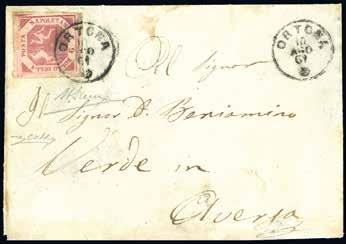 POSTA NAPOLETANA
ORTONA
AGO
61
ORTONA
10
AGO
61
Al Signor
Il Signor D. Beniamino
Verde in
Aversa